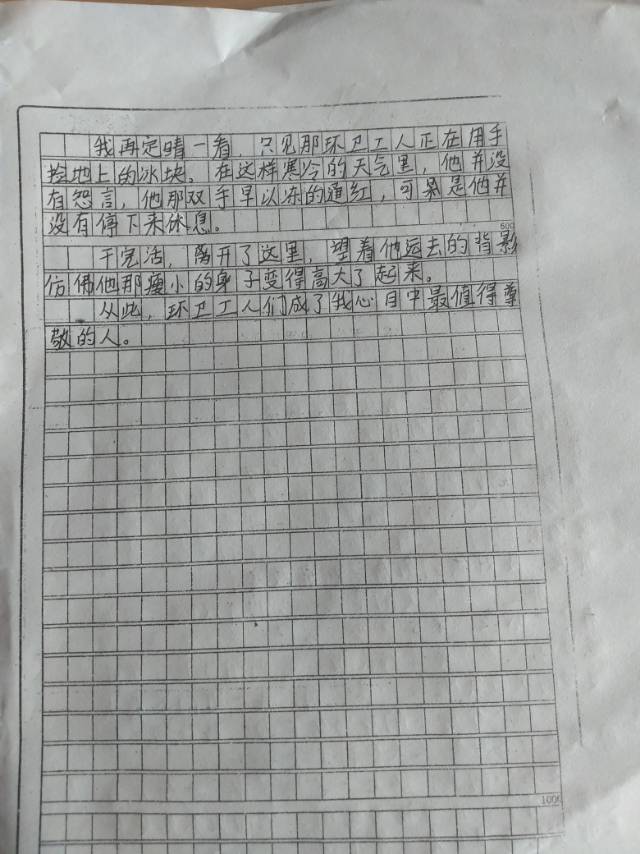 我再定睛一看，只见那环卫工人正在用手
捡地上的冰块，在这样寒冷的天气里，他并没
有怨言，他那双手早以冻的通红，可是他并
没有停下来休息。
500
干完活，离开了这里，望着他远去的背影
仿佛他那瘦小的身子变得高大了起来。
从此，环卫工人们成了我心目中最值得尊
敬的人。
1000